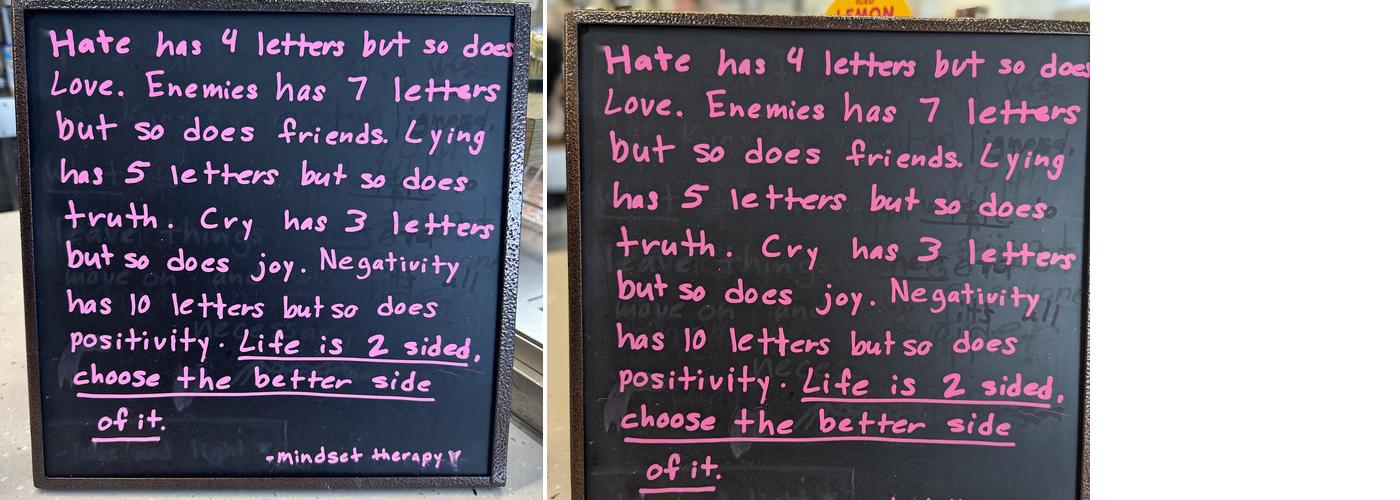 Hate has 4 letters but so does
Love. Enemies has 7 letters
but so does friends. Lying
has 5 letters but so does
truth. Cry has 3 letters
but so does joy. Negativity
has 10 letters but so does
positivity. Life is 2 sided,
choose the better side
of it.
-mindset therapy
LEMON
Hate has 4 letters but so does
Love. Enemies has 7 letters
but so does friends. Lying
has 5 letters but so does
truth. Cry has 3 letters
but so does joy. Negativity
has 10 letters but so does
positivity. Life is 2 sided,
choose the better side
of it.